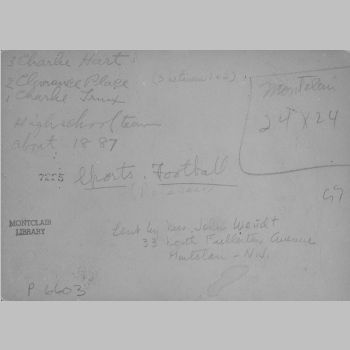 3 Charlie Hart
2 Clarence Place
(3 between 1 & 2)
1 Charlie
High school team
about 1887
Montclair
24 x 24
7255 Sports. Football
MONTCLAIR
LIBRARY
Lent by Mrs. John
33 North Fullerton Avenue
Montclair - N.J.
P 6603